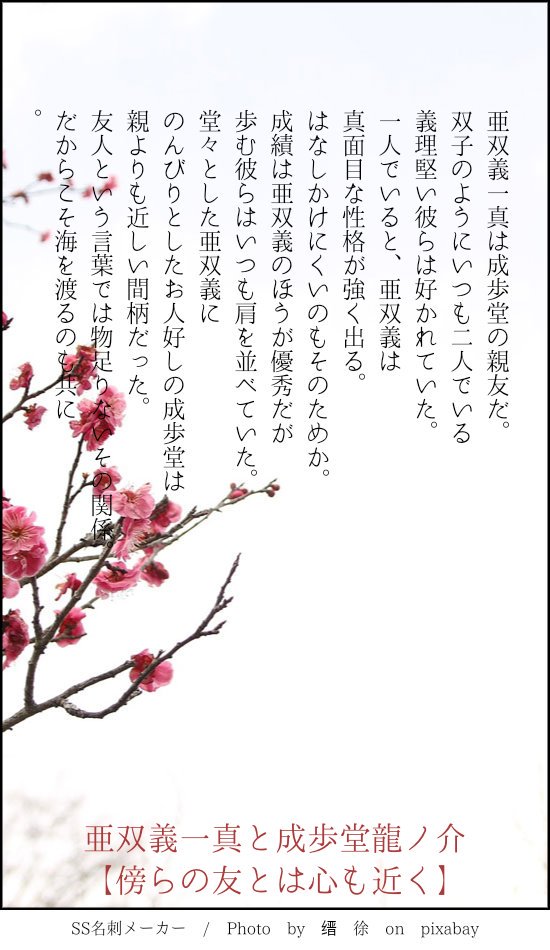 亜双義一真は成歩堂の親友だ。
双子のようにいつも二人でいる
義理堅い彼らは好かれていた。
一人でいると、亜双義は
真面目な性格が強く出る。
はなしかけにくいのもそのためか。
成績は亜双義のほうが優秀だが
歩む彼らはいつも肩を並べていた。
堂々とした亜双義に
のんびりとしたお人好しの成歩堂は
親よりも近しい間柄だった。
友人という言葉では物足りないその関係。
だからこそ海を渡るのも共に
。
亜双義一真と成歩堂龍ノ介
【傍らの友とは心も近く】
SS名刺メーカー / Photo by 缙 徐 on pixabay